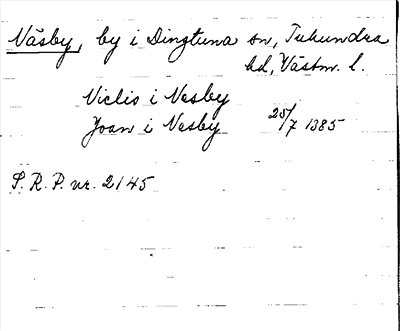 Näsby, by i Dingtuna sn, Tuhundra
hd, Västm. l.
Niclis i Nesby
Joan i Nesby 25/7 1385
S. R. P. nr. 2145